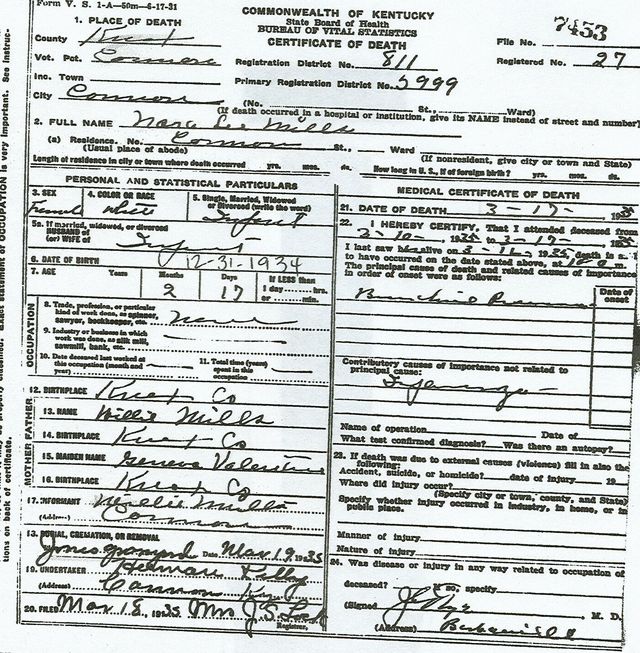 Form V. S. 1-A—50m—6-17-31
COMMONWEALTH OF KENTUCKY
State Board of Health
BUREAU OF VITAL STATISTICS
CERTIFICATE OF DEATH
1. PLACE OF DEATH
County Knox
File No. 7453
Vot. Pct. Cannon
Registration District No. 811
Registered No. 27
Inc. Town
Primary Registration District No. 5999
City Cannon
(No. St., Ward)
(If death occurred in a hospital or institution, give its NAME instead of street and number)
2. FULL NAME Nora Lee Mills
(a) Residence. No. Cannon St., Ward
(Usual place of abode)
(If nonresident, give city or town and State)
Length of residence in city or town where death occurred yrs. mos. ds. How long in U. S., if of foreign birth? yrs. mos. ds.
PERSONAL AND STATISTICAL PARTICULARS
3. SEX
Female
4. COLOR OR RACE
White
5. Single, Married, Widowed or Divorced (write the word)
Infant
5a. If married, widowed, or divorced
HUSBAND of
(or) WIFE of
Infant
6. DATE OF BIRTH 12-31-1934
7. AGE Years Months Days If LESS than
2 17 1 day hrs.
or min.
OCCUPATION
8. Trade, profession, or particular
kind of work done, as spinner,
sawyer, bookkeeper, etc. none
9. Industry or business in which
work was done, as silk mill,
sawmill, bank, etc.
10. Date deceased last worked at
this occupation (month and
year)
11. Total time (years)
spent in this
occupation
12. BIRTHPLACE Knox Co
FATHER
13. NAME Willie Mills
14. BIRTHPLACE Knox Co
MOTHER
15. MAIDEN NAME Geneva Valentine
16. BIRTHPLACE Knox Co
17. INFORMANT Willie Mills
(Address) Cannon
18. BURIAL, CREMATION, OR REMOVAL
Jones graveyard Date Mar 19 1935
19. UNDERTAKER Herman
(Address) Cannon Ky
20. FILED Mar 18, 1935 Mrs J. S.
Registrar.
MEDICAL CERTIFICATE OF DEATH
21. DATE OF DEATH 3-17- 1935
22. I HEREBY CERTIFY, That I attended deceased from
3-10-, 1935 to 3-17-, 1935
I last saw h alive on 3-11-, 1935, death is
to have occurred on the date stated above, at m.
The principal cause of death and related causes of importance
in order of onset were as follows:
Date of
onset
Contributory causes of importance not related to
principal cause:
Name of operation Date of
What test confirmed diagnosis? Was there an autopsy?
23. If death was due to external causes (violence) fill in also the
following:
Accident, suicide, or homicide? date of injury 19
Where did injury occur?
(Specify city or town, county, and State)
Specify whether injury occurred in industry, in home, or in
public place.
Manner of injury
Nature of injury
24. Was disease or injury in any way related to occupation of
deceased? If so, specify
(Signed) M. D.
(Address) Barbourville